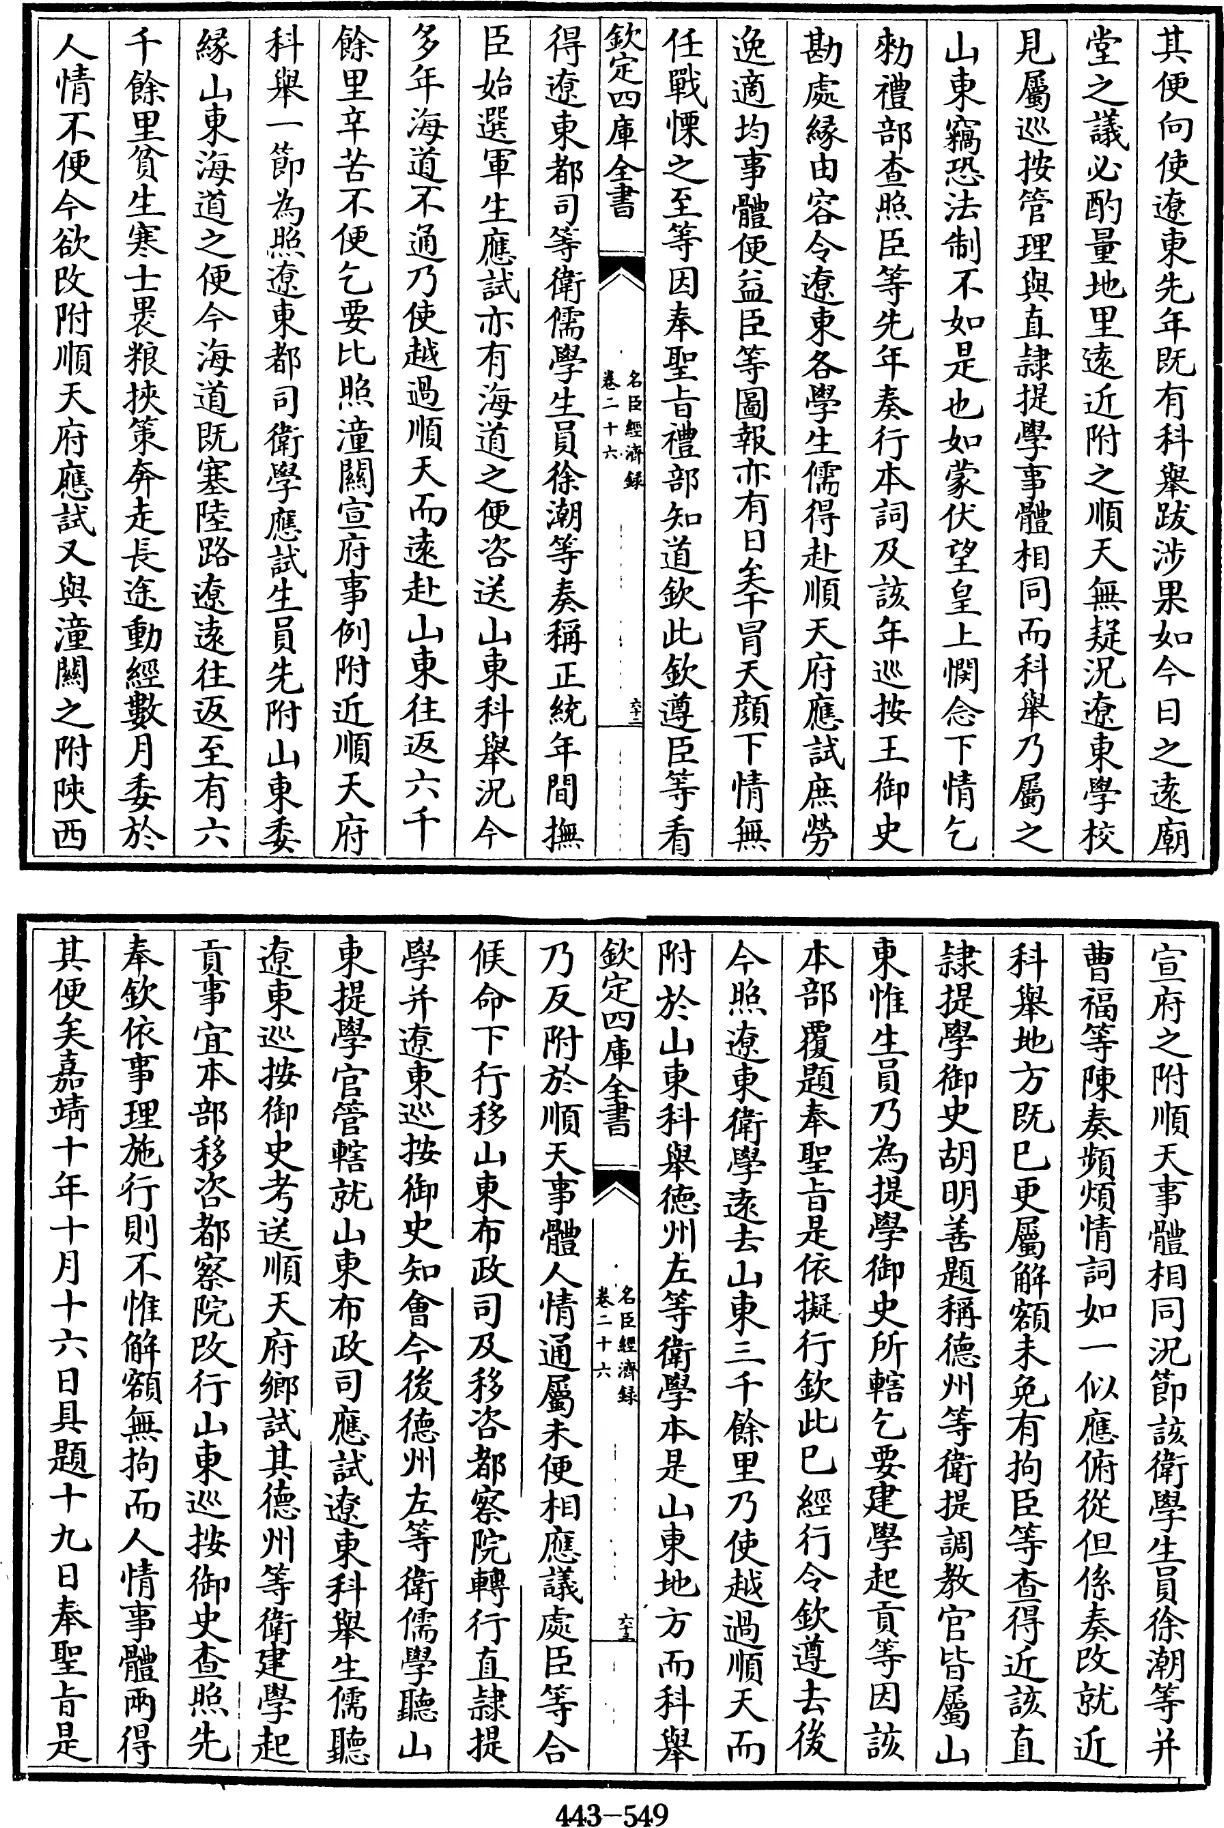 其便向使遼東先年既有科舉跋涉果如今日之遠廟
堂之議必酌量地里遠近附之順天無疑況遼東學校
見屬巡按管理與直隷提學事體相同而科舉乃屬之
山東竊恐法制不如是也如蒙伏望皇上憫念下情乞
勑禮部查照臣等先年奏行本詞及該年巡按王御史
勘處緣由容令遼東各學生儒得赴順天府應試庶勞
逸適均事體便益臣等圖報亦有日矣干冒天顔下情無
任戰慄之至等因奉聖旨禮部知道欽此欽遵臣等看
欽定四庫全書
名臣經濟録
卷二十六
六十三
得遼東都司等衛儒學生員徐潮等奏稱正統年間撫
臣始選軍生應試亦有海道之便咨送山東科舉況今
多年海道不通乃使越過順天而遠赴山東往返六千
餘里辛苦不便乞要比照潼關宣府事例附近順天府
科舉一節為照遼東都司衛學應試生員先附山東委
緣山東海道之便今海道既塞陸路遼遠往返至有六
千餘里貧生寒士裹粮挾策奔走長途動經數月委於
人情不便今欲改附順天府應試又與潼關之附陜西
宣府之附順天事體相同況節該衛學生員徐潮等并
曹福等陳奏頻煩情詞如一似應俯從但係奏改就近
科舉地方既已更屬解額未免有拘臣等查得近該直
隷提學御史胡明善題稱德州等衛提調教官皆屬山
東惟生員乃為提學御史所轄乞要建學起貢等因該
本部覆題奉聖旨是依擬行欽此已經行令欽遵去後
今照遼東衛學遠去山東三千餘里乃使越過順天而
附於山東科舉德州左等衛學本是山東地方而科舉
欽定四庫全書
名臣經濟録
卷二十六
乃反附於順天事體人情通屬未便相應議處臣等合
候命下行移山東布政司及移咨都察院轉行直隷提
學并遼東巡按御史知會今後德州左等衛儒學聽山
東提學官管轄就山東布政司應試遼東科舉生儒聽
遼東巡按御史考送順天府鄉試其德州等衛建學起
貢事宜本部移咨都察院改行山東巡按御史查照先
奉欽依事理施行則不惟解額無拘而人情事體兩得
其便矣嘉靖十年十月十六日具題十九日奉聖旨是
443-549